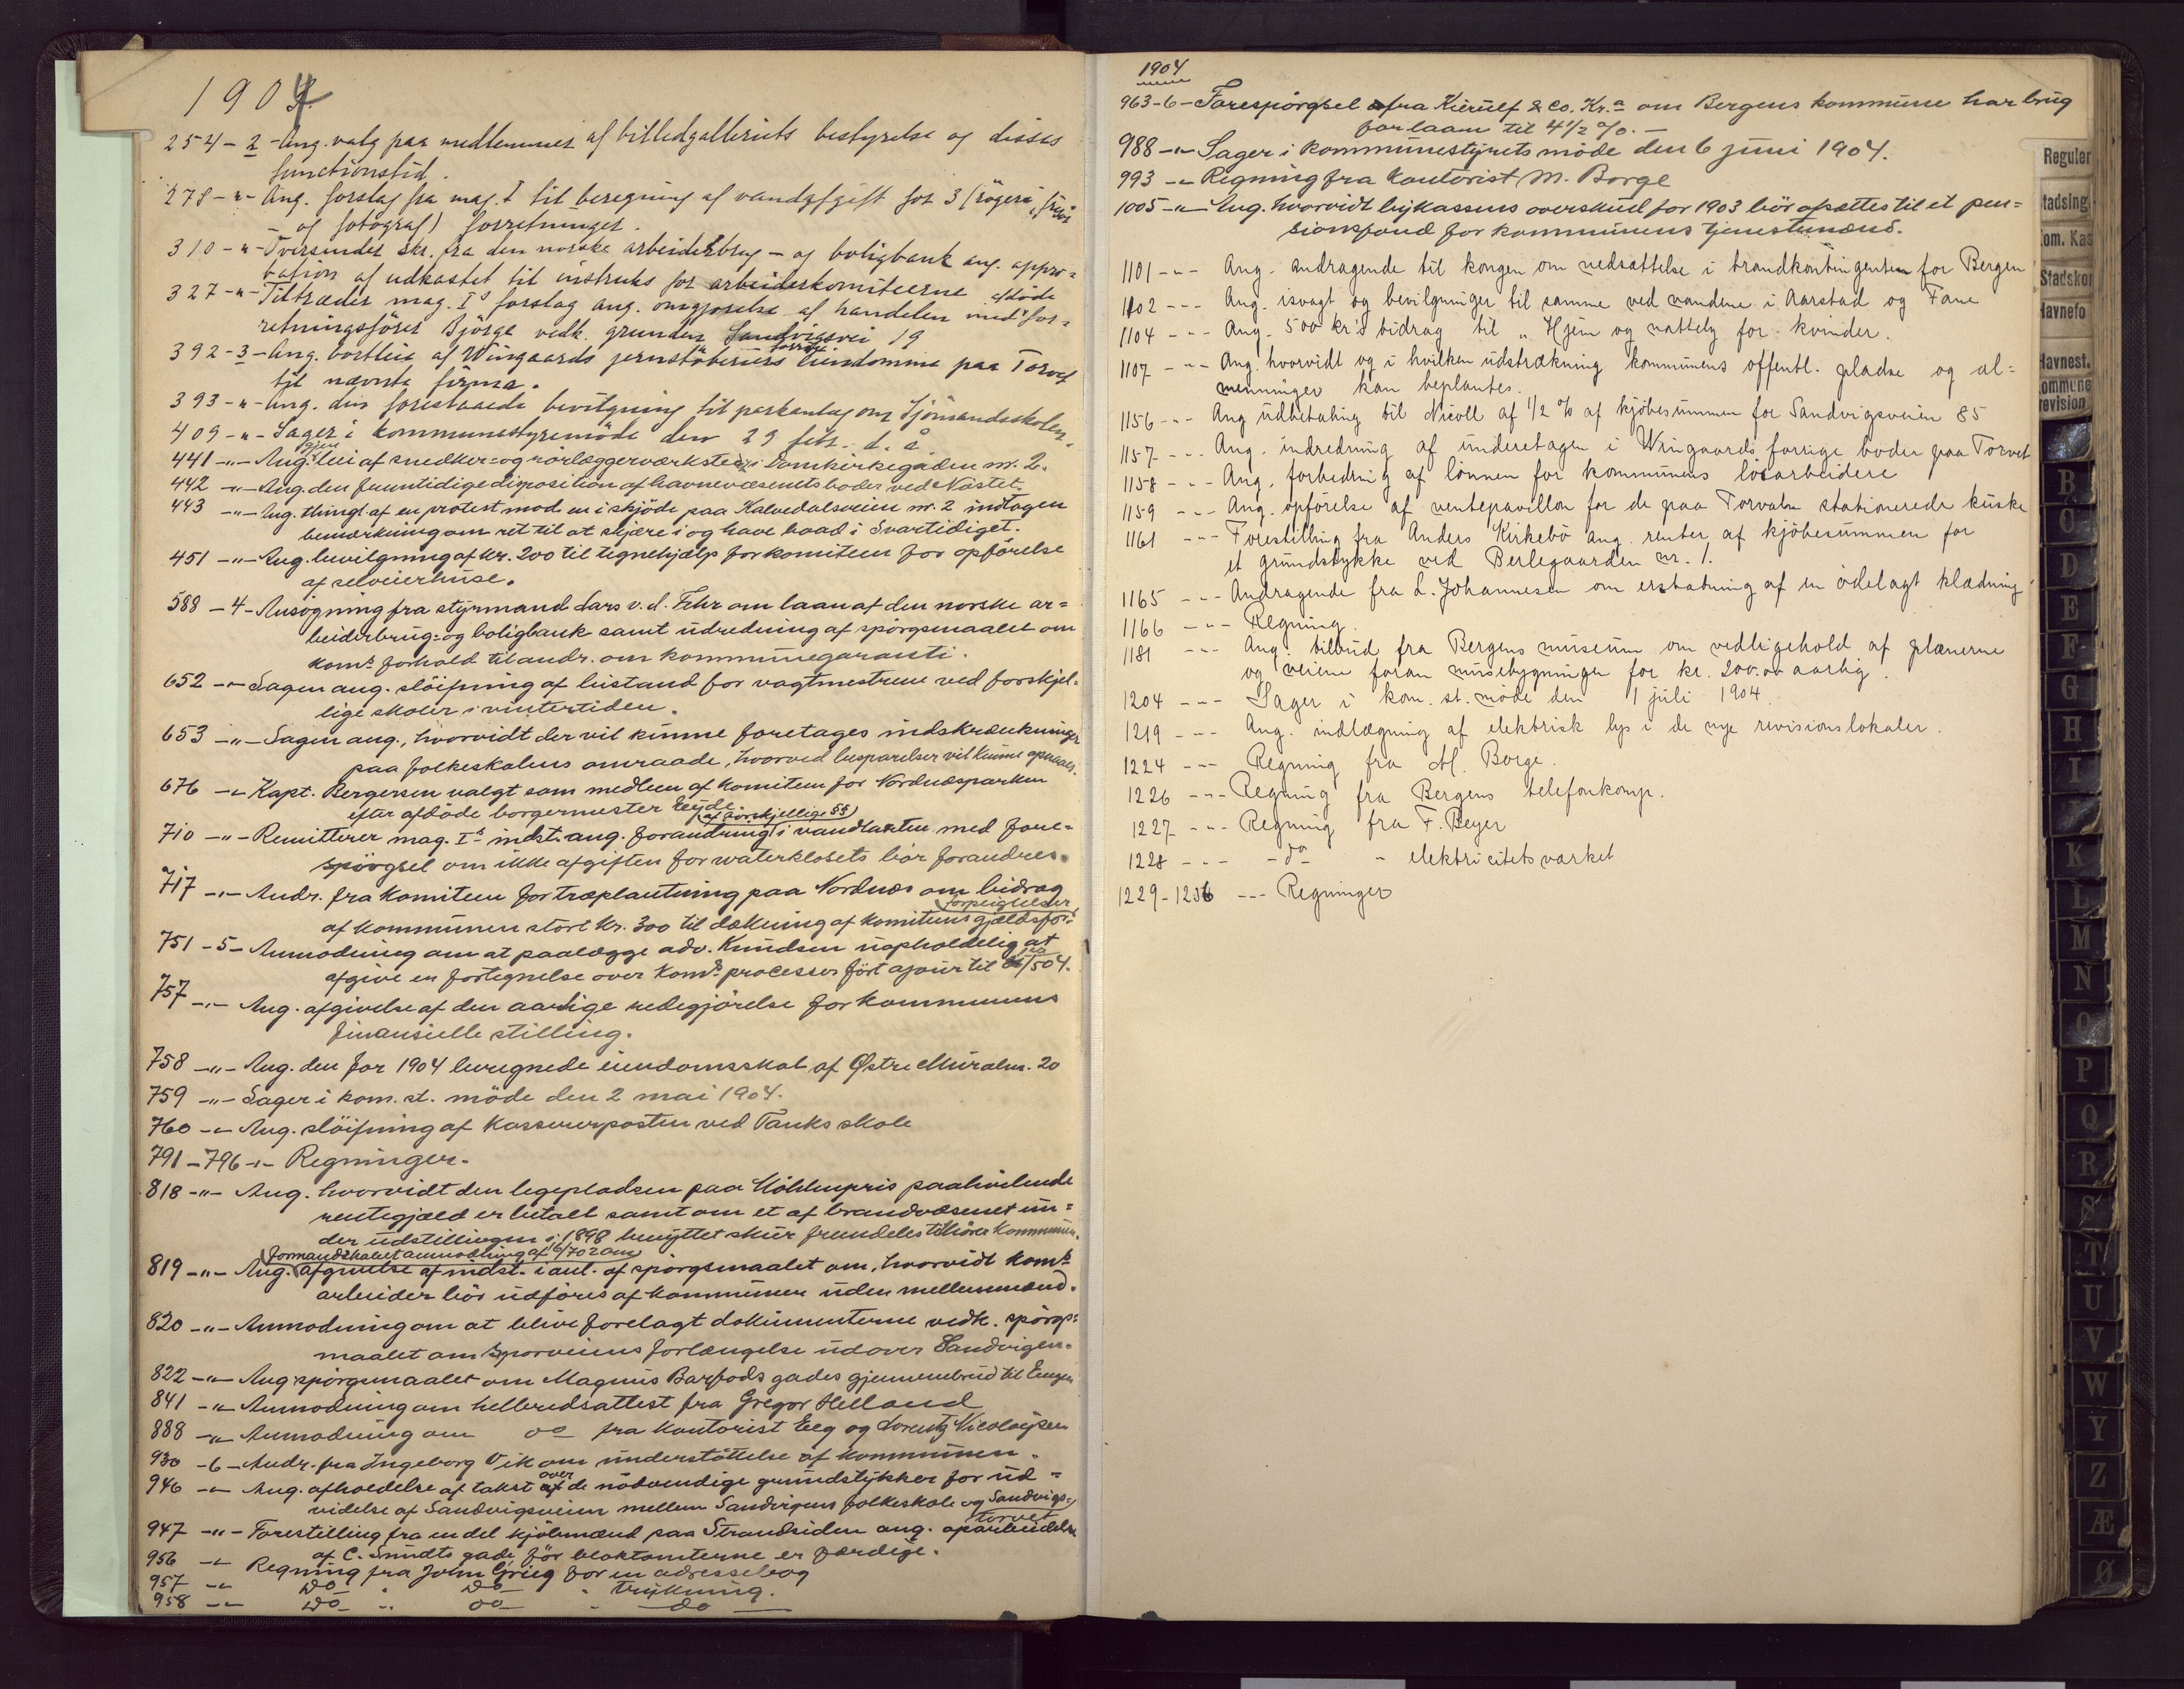 1904
254 - 2 - Ang. valg paa medlemmer af billedgalleriets bestyrelse og disses
functionstid.
278 - " - Ang. forslag fra mag. I til beregning af vandafgift for 3 (røgeri, frisør
og fotograf) forretninger.
310 - " - Oversender skr. fra den norske arbeiderbrug - og boligbank ang. appro=
bation af udkastet til instruks for arbeiderkomiteerne
327 - " - Tiltræder mag. I's forslag ang. omgjørelse af handelen med afdøde for=
retningsfører Bjørge vedk. grunden Sandvigsvei 19
392 - 3 - Ang. bortleie af Wingaards jernstøberiers forrige eiendomme paa Torvet
til nævnte firma.
393 - " - Ang. den forestaaede bevilgning til parkanlæg om Sjømandsskolen.
409 - " - Sager i kommunestyremøde den 29 febr. d. å.
441 - " - Ang. gjenleie af snedker= og rørlæggerværksted i Domkirkegaden nr. 2.
442 - " - Ang. den fremtidige disposition af havnevæsenets boder ved Nøstet.
443 - " - Ang. thingl. af en protest mod en i skjøde paa Kalvedalsveien nr. 2 indtagen
bemærkning om ret til at skjære i og have baad i Svartediget.
451 - " - Ang. bevilgning af kr. 200 til tegnehjælp for komiteen for opførelse
af selveierhuse.
588 - 4 - Ansøgning fra styrmand Lars v. d. Fehr om laan af den norske ar=
beiderbrug= og boligbank samt udredning af spørgsmaalet om
koms forhold til andr. om kommunegaranti.
652 - " - Sagen ang. sløifning af bistand for vagtmestrene ved forskjel=
lige skoler i vintertiden.
653 - " - Sagen ang., hvorvidt der vil kunne foretages indskrænkninger
paa folkeskolens omraade, hvorved besparelser vil kunne opnaaes.
676 - " - Kapt. Bergersen valgt som medlem af komiteen for Nordnæsparken
efter afdøde borgermester Eeyde.
710 - " - Remitterer mag. I's indst. ang. forandring (af forskjellige §§) i vandtaxten med fore=
spørgsel om ikke afgiften for waterklosets bør forandres.
717 - " - Andr. fra komiteen for træplantning paa Nordnæs om bidrag
af kommunen stort kr. 300 til dækning af komiteens gjældsfor=
forpligtelser
751 - 5 - Anmodning om at paalægge adv. Knudsen uopholdelig at
afgive en fortegnelse over koms processer ført ajour til 1/5 04.
757 - " - Ang. afgivelse af den aarlige redegjørelse for kommunens
finansielle stilling.
758 - " - Ang. den for 1904 beregnede eiendomsskat af Østre Muralm. 20
759 - " - Sager i kom. st. møde den 2 mai 1904.
760 - " - Ang. sløifning af kassererposten ved Tanks skole
791 - 796 - " - Regninger.
818 - " - Ang. hvorvidt den legepladsen paa Møhlenpris paahvilende
rentegjæld er betalt samt om et af brandvæsenet un=
der udstillingen i 1898 benyttet skur fremdeles tilhører kommunen.
819 - " - Ang. (formandskabets anmodning af 16/7 02 om) afgivelse af indst. i anl. af spørgsmaalet om, hvorvidt koms
arbeider bør udføres af kommunen uden mellemmænd.
820 - " - Anmodning om at blive forelagt dokumenterne vedk. spørgs=
maalet om sporveiens forlængelse udover Sandvigen.
822 - " - Ang spørgsmaalet om Magnus Barfods gades gjennembrud til Engen
841 - " - Anmodning om helbredsattest fra Gregor Helland
888 - " - Anmodning om do fra kontorist Eeg og Lorentz Nicolaysen
930 - 6 - Andr. fra Ingeborg Vik om understøttelse af kommunen.
946 - " - Ang. afholdelse af takst over de nødvendige grundstykker for ud=
videlse af Sandvigsveien mellem Sandvigens folkeskole og Sandvigs=
torvet
947 - " - Forestilling fra en del kjøbmænd paa Strandsiden ang. oparbeidelse
af C. Sundts gade før bloktomterne er færdige.
956 - " - Regning fra John Grieg for en adressebog
957 - " - Do " Do " trykning.
958 - " - Do " do - do -
1904
963 - 6 - Forespørgsel fra Kierulf & Co. Kr.a om Bergens kommune har brug
for laan til 4 1/2 %. -
988 - " - Sager i kommunestyrets møde den 6 juni 1904.
993 - " - Regning fra kontorist M. Borge
1005 - " - Ang. hvorvidt bykassens overskud for 1903 bør afsættes til et pen=
sionsfond for kommunens tjenestemænd.
1101 - " - Ang. andragende til kongen om nedsættelse i brandkontingenten for Bergen
1102 - " - Ang. isvagt og bevilgninger til samme ved vandene i Aarstad og Fane
1104 - " - Ang. 500 kr's bidrag til "Hjem og nattely for kvinder.
1107 - " - Ang. hvorvidt og i hvilken udstrækning kommunens offentl. pladse og al=
menninger kan beplantes.
1156 - " - Ang udbetaling til Nicoll af 1/2 % af kjøbesummen for Sandvigsveien 85
1157 - " - Ang. indredning af underetagen i Wingaards forrige boder paa Torvet
1158 - " - Ang. forbedring af lønnen for kommunens løsarbeidere
1159 - " - Ang. opførelse af ventepavillon for de paa Torvalm stationerede kuske
1161 - " - Forestilling fra Anders Kirkebø ang. renter af kjøbesummen for
et grundstykke ved Berlegaarden nr. 1.
1165 - " - Andragende fra L. Johannesen om erstatning af en ødelagt klædning
1166 - " - Regning.
1181 - " - Ang. tilbud fra Bergens museum om vedligehold af plænerne
og veiene foran musebygningen for kr. 200.00 aarlig.
1204 - " - Sager i kom. st. møde den 1 juli 1904.
1219 - " - Ang. indlægning af elektrisk lys i de nye revisionslokaler.
1224 - " - Regning fra M. Borge.
1226 - " - Regning fra Bergens telefonkomp.
1227 - " - Regning fra F. Beyer
1228 - " - - do - " elektricitetsværket
1229 - 1236 - " - Regninger
Regule
Stadsing
Kom. Kas
Stadskon
Havnefo
Havnest.
Kommune
revision
B
C
D
E
F
G
H
I
J
K
L
M
N
O
P
Q
R
S
T
U
V
W
Y
Z
Æ
Ø